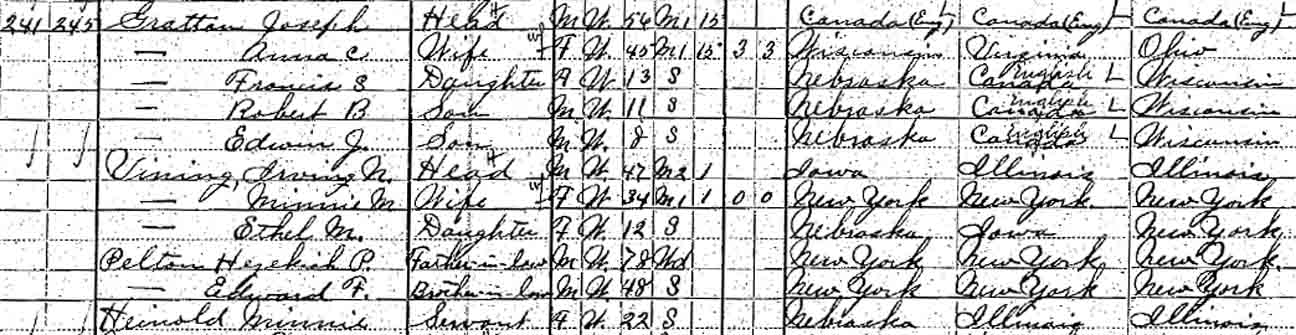 241 245 Grattan Joseph Head M W 54 M1 15 Canada (Eng) Canada (Eng) Canada (Eng)
— Anna C Wife F W 45 M1 15 3 3 Wisconsin Virginia Ohio
— Francis S Daughter F W 13 S Nebraska Canada English Wisconsin
— Robert B Son M W 11 S Nebraska Canada English Wisconsin
— Edwin J. Son M W 8 S Nebraska Canada English Wisconsin
Vining, Irving N. Head M W 47 M2 1 Iowa Illinois Illinois
— Minnie M Wife F W 34 M1 1 0 0 New York New York New York
— Ethel M. Daughter F W 12 S Nebraska Iowa New York
Pelton Hezekiah P. Father-in-law M W 78 Wd New York New York New York
— Edward F. Brother-in-law M W 48 S New York New York New York
Heinold Minnie Servant F W 22 S Nebraska Illinois Illinois